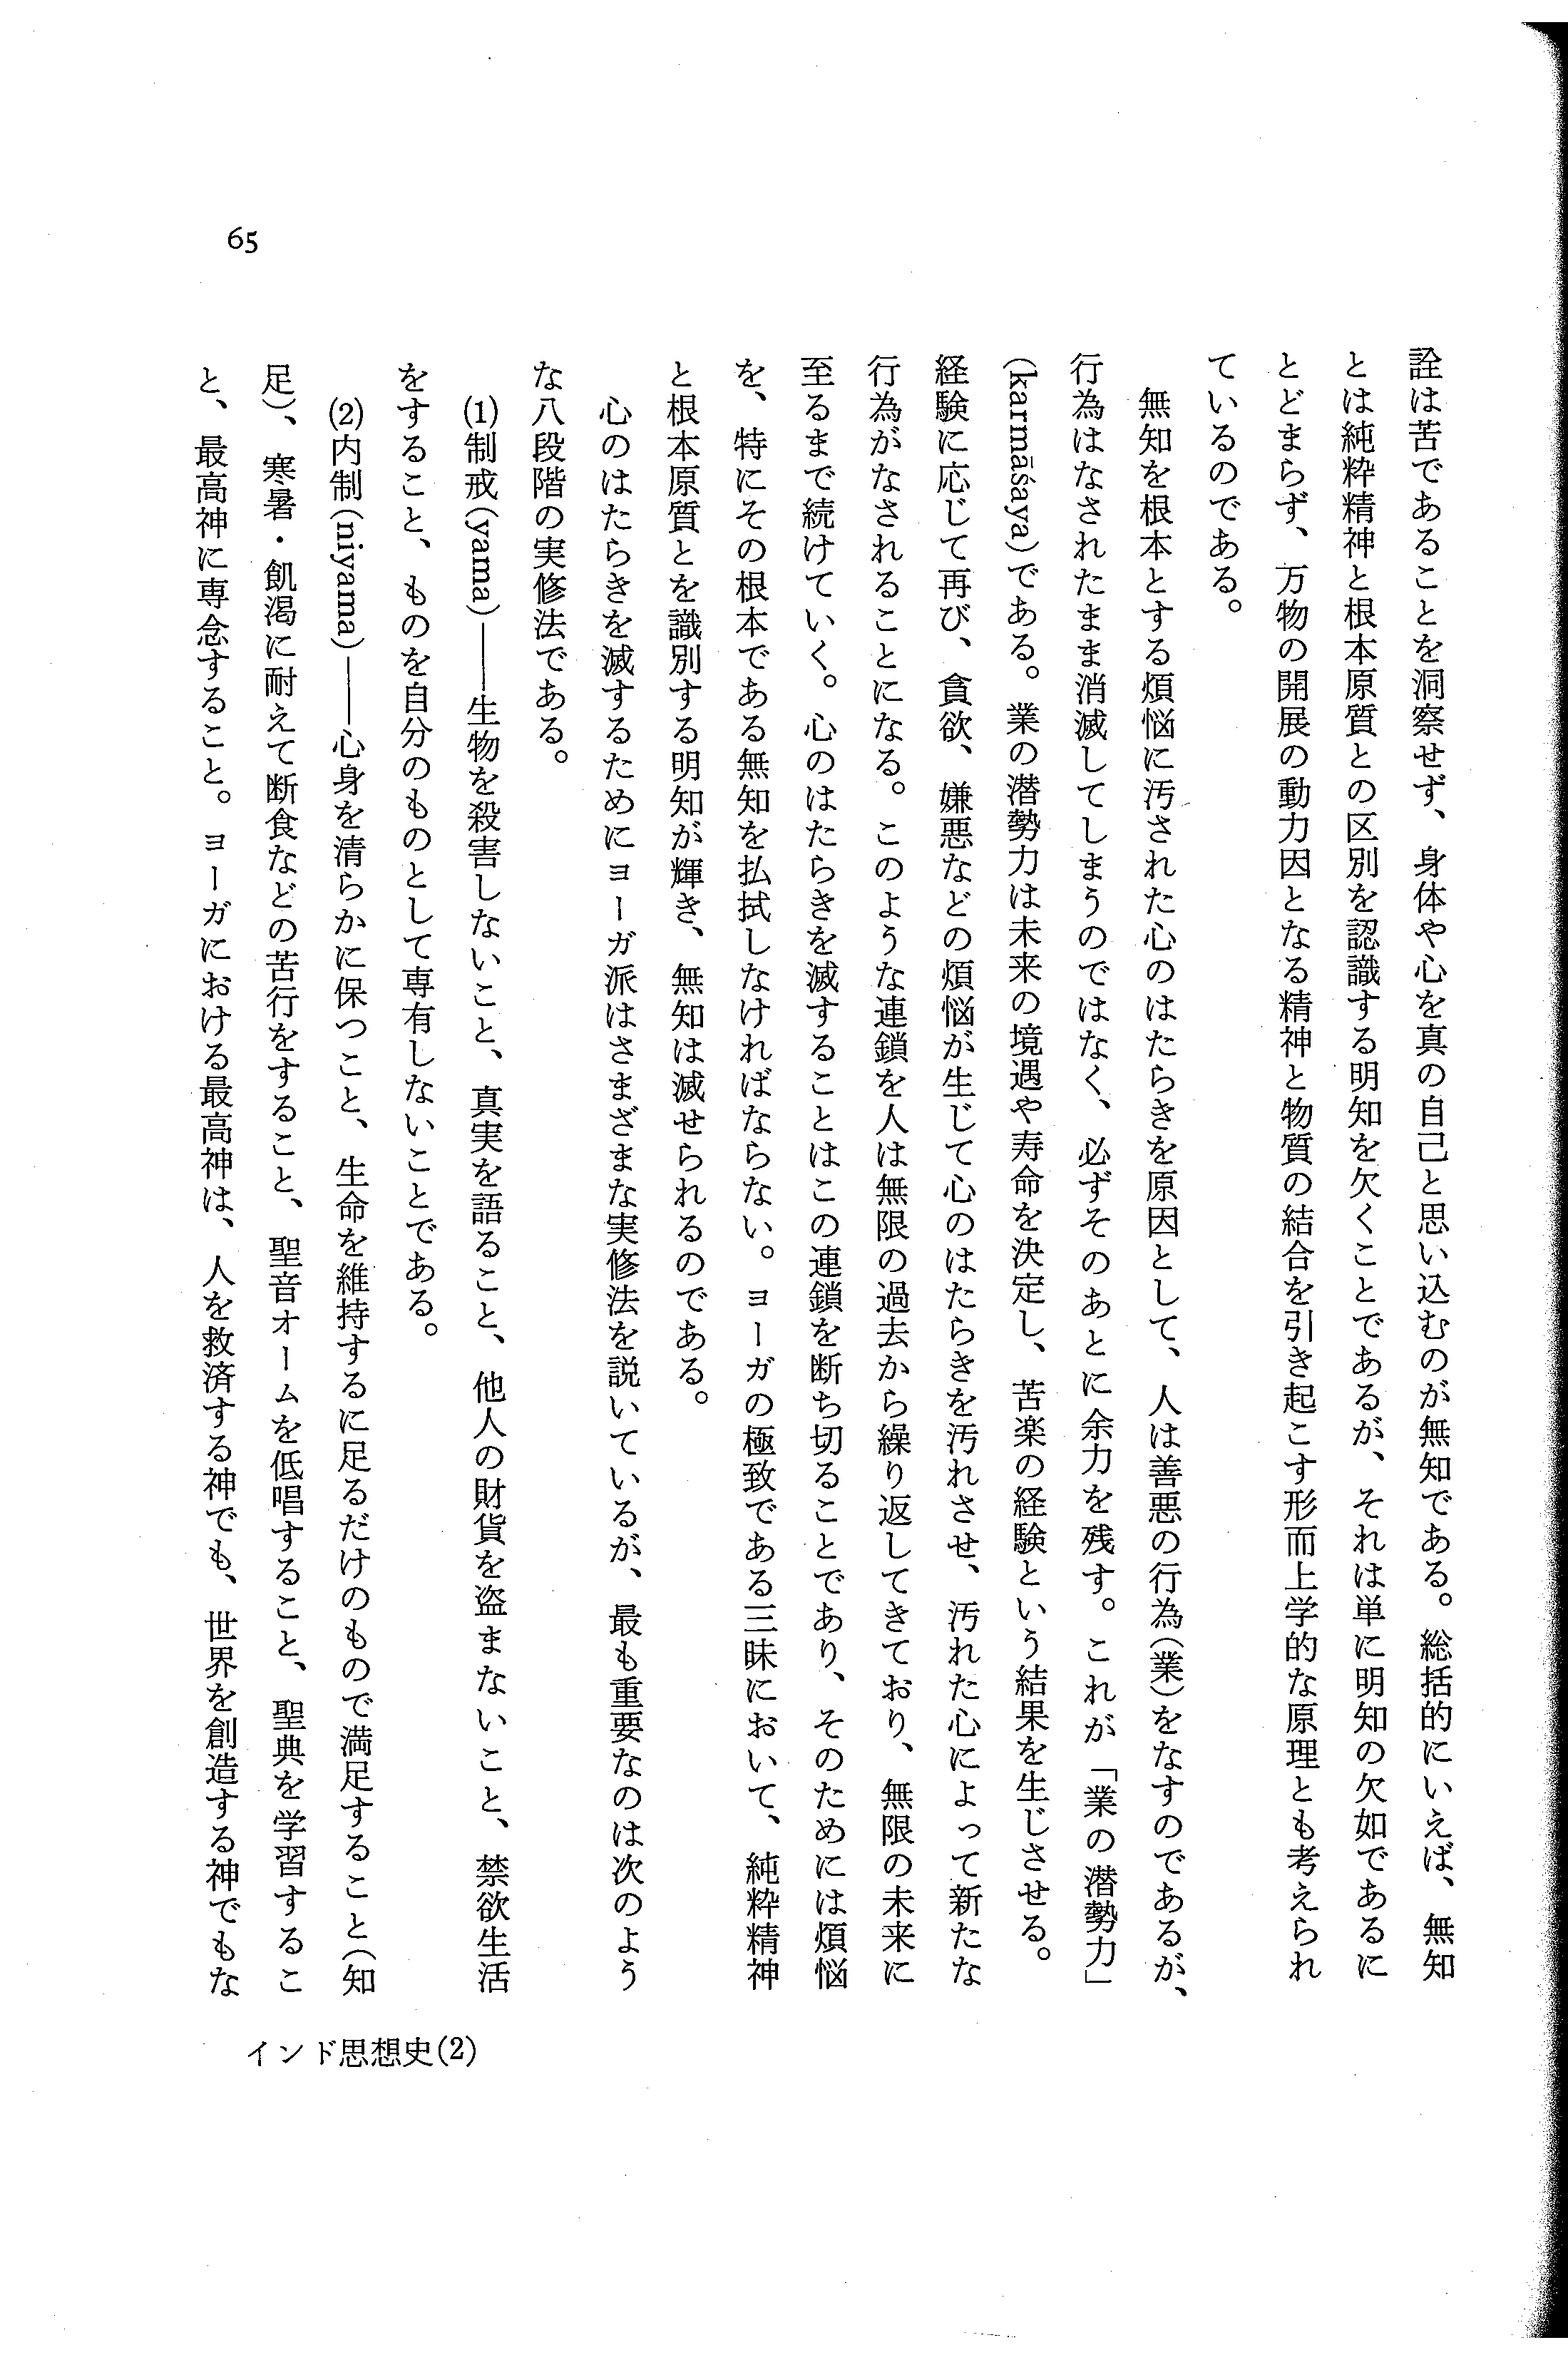 詮は苦であることを洞察せず、身体や心を真の自己と思い込むのが無知である。総括的にいえば、無知
とは純粋精神と根本原質との区別を認識する明知を欠くことであるが、それは単に明知の欠如であるに
とどまらず、万物の開展の動力因となる精神と物質の結合を引き起こす形而上学的な原理とも考えられ
ているのである。
無知を根本とする煩悩に汚された心のはたらきを原因として、人は善悪の行為(業)をなすのであるが、
行為はなされたまま消滅してしまうのではなく、必ずそのあとに余力を残す。これが「業の潜勢力」
(karmāśaya)である。業の潜勢力は未来の境遇や寿命を決定し、苦楽の経験という結果を生じさせる。
経験に応じて再び、貪欲、嫌悪などの煩悩が生じて心のはたらきを汚れさせ、汚れた心によって新たな
行為がなされることになる。このような連鎖を人は無限の過去から繰り返してきており、無限の未来に
至るまで続けていく。心のはたらきを滅することはこの連鎖を断ち切ることであり、そのためには煩悩
を、特にその根本である無知を払拭しなければならない。ヨーガの極致である三昧において、純粋精神
と根本原質とを識別する明知が輝き、無知は滅せられるのである。
心のはたらきを滅するためにヨーガ派はさまざまな実修法を説いているが、最も重要なのは次のよう
な八段階の実修法である。
(1)制戒(yama)――生物を殺害しないこと、真実を語ること、他人の財貨を盗まないこと、禁欲生活
をすること、ものを自分のものとして専有しないことである。
(2)内制(niyama)――心身を清らかに保つこと、生命を維持するに足るだけのもので満足すること(知
足)、寒暑・飢渇に耐えて断食などの苦行をすること、聖音オームを低唱すること、聖典を学習するこ
と、最高神に専念すること。ヨーガにおける最高神は、人を救済する神でも、世界を創造する神でもな
65
インド思想史(2)